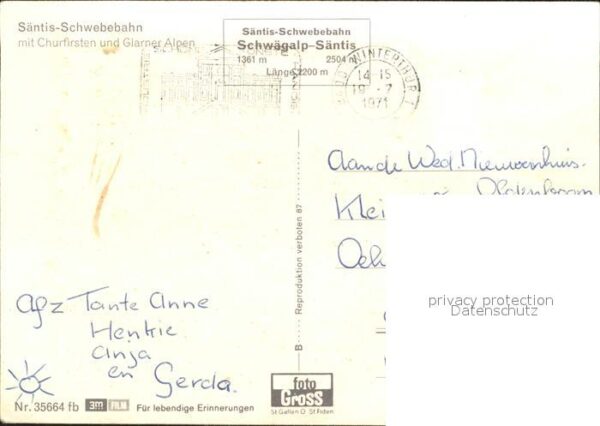 Säntis-Schwebebahn
mit Churfirsten und Glarner Alpen
Säntis-Schwebebahn
Schwägalp–Säntis
1361 m 2504 m
Länge 2200 m
WINTERTHUR 1
14 15
19 7
1971
Aan de Wed.
Klei
Afz Tante Anne
Henkie
Anja
en Gerda.
Reproduktion verboten 87
B
privacy protection
Datenschutz
Nr. 35664 fb 3M FILM Für lebendige Erinnerungen
foto
Gross
St Gallen O St Fiden